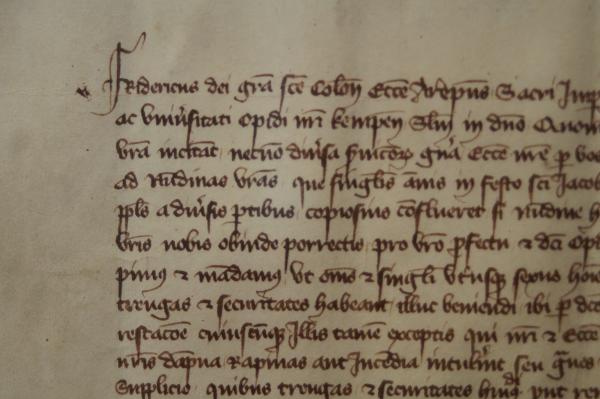 Fridericus dei grã sce Colon Ecce Archiepus Sacri Imp
ac vniusitati Opidi nri kempen Slm in dno Quon
vrã incitat necno diusa sincer gna Ecce nre p
ad Nudinas vrãs que singlis ãnis in festo sci Jacob
ppls a diusis ptibus copiosius cõflueret si nudine h
vris nobis obinde porrectis pro vro pfectu & dci Opi
pimus & mãdamus vt oms & singli vtriusq sexus hoie
treugas & securitates habeant illuc veniendi ibi p dce
restacoe cuiuscũq Illis tamẽ exceptis qui nri & Ecce
nris dãpna Rapinas aut Incẽdia intulint seu
Supplicio quibus treugas & securitates